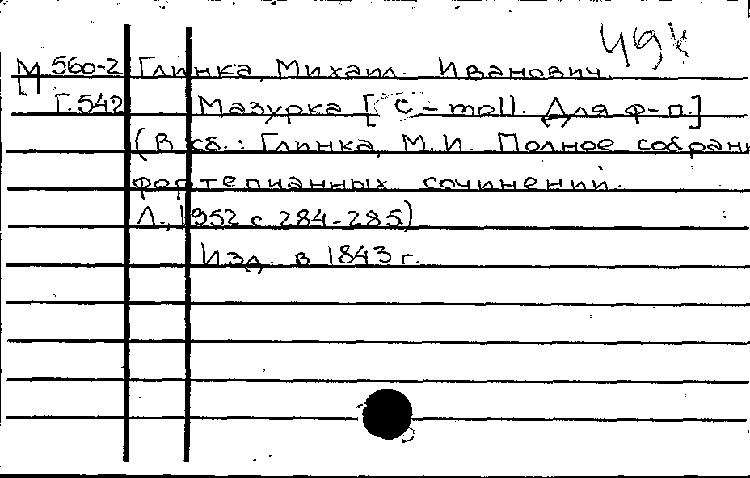 49к
М 560-2 Глинка, Михаил Иванович.
Г.542 Мазурка [c-moll. Для ф-п.]
(В кб.: Глинка, М.И. Полное собрани
фортепианных сочинений.
Л., 1952 с 284-285)
Изд. в 1843 г.